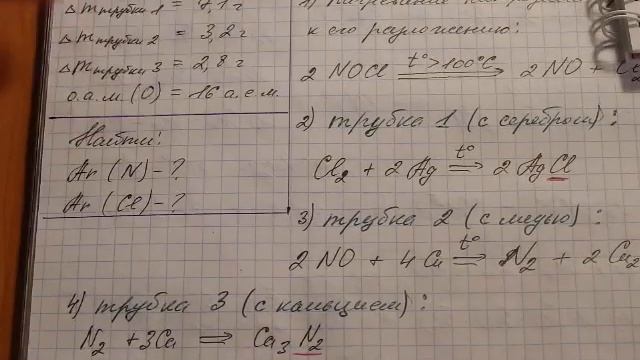 Δ m трубки 1 = 7,1 г
Δ m трубки 2 = 3,2 г
Δ m трубки 3 = 2,8 г
о.а.м. (О) = 16 а.е.м.
Найти:
Ar (N) - ?
Ar (Cl) - ?
к его разложению:
2 NOCl t°>100°C ⇒ 2 NO + Cl2
2) трубка 1 (с серебром):
Cl2 + 2 Ag t° ⇒ 2 AgCl
3) трубка 2 (с медью):
2 NO + 4 Cu t° ⇒ N2 + 2 Cu2
4) трубка 3 (с кальцием):
N2 + 3Ca ⇒ Ca3 N2